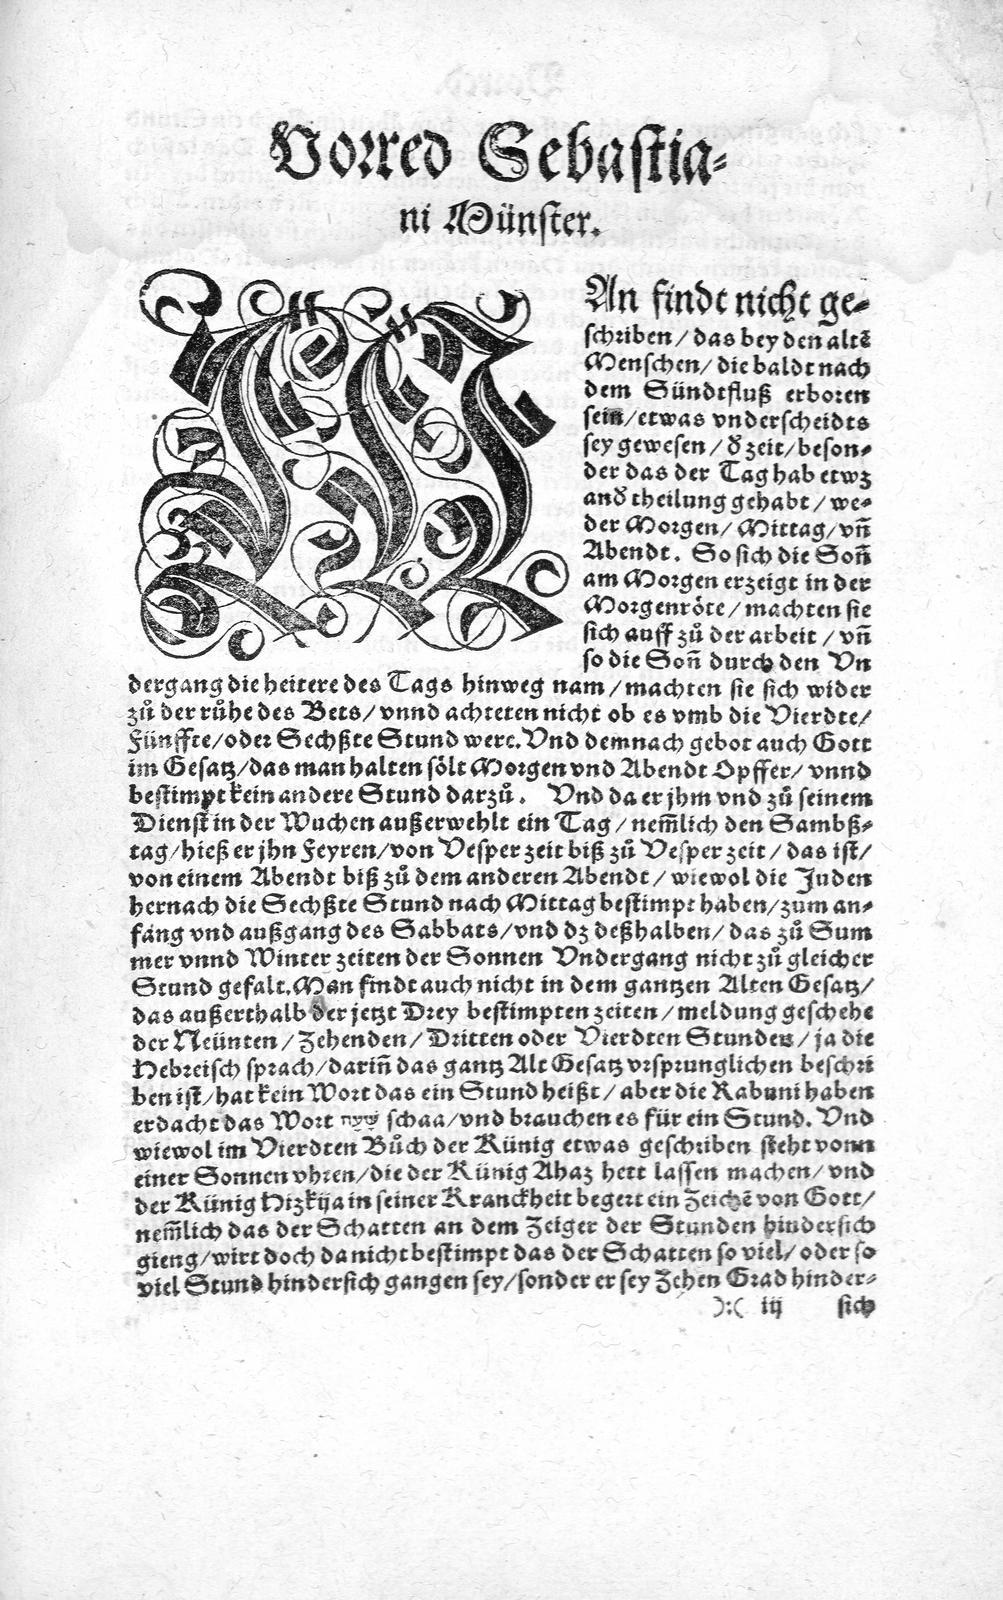 Vorred Sebastia-
ni Münster.
MAn findt nicht ge-
schriben / das bey den altē
Menschen / die baldt nach
dem Sündtfluß erboren
sein / etwas vnderscheidts
sey gewesen / d' zeit / beson-
der das der Tag hab etwz
and' theilung gehabt / we-
der Morgen / Mittag / vn̄
Abendt. So sich die Son̄
am Morgen erzeigt in der
Morgenröte / machten sie
sich auff zů der arbeit / vn̄
so die Son̄ durch den Vn
dergang die heitere des Tags hinweg nam / machten sie sich wider
zů der růhe des Bets / vnnd achteten nicht ob es vmb die Vierdte /
Fünffte / oder Sechßte Stund were. Vnd demnach gebot auch Gott
im Gesatz / das man halten sölt Morgen vnd Abendt Opffer / vnnd
bestimpt kein andere Stund darzů. Vnd da er jhm vnd zů seinem
Dienst in der Wuchen außerwehlt ein Tag / nem̄lich den Sambß-
tag / hieß er jhn Feyren / von Vesper zeit biß zů Vesper zeit / das ist /
von einem Abendt biß zů dem anderen Abendt / wiewol die Juden
hernach die Sechßte Stund nach Mittag bestimpt haben / zum an-
fang vnd außgang des Sabbats / vnd dz deßhalben / das zů Sum
mer vnnd Winter zeiten der Sonnen Vndergang nicht zů gleicher
Stund gefalt. Man findt auch nicht in dem gantzen Alten Gesatz /
das außerthalb der jetzt Drey bestimpten zeiten / meldung geschehe
der Neünten / Zehenden / Dritten oder Vierdten Stunden / ja die
Hebreisch sprach / darin̄ das gantz Alt Gesatz vrsprunglichen beschri
ben ist / hat kein Wort das ein Stund heißt / aber die Rabuni haben
erdacht das Wort שעה schaa / vnd brauchen es für ein Stund. Vnd
wiewol im Vierdten Bůch der Künig etwas geschriben steht vonn
einer Sonnen vhren / die der Künig Ahaz hett lassen machen / vnd
der Künig Hizkija in seiner Kranckheit begert ein Zeichē von Gott /
nem̄lich das der Schatten an dem Zeiger der Stunden hindersich
gieng / wirt doch da nicht bestimpt das der Schatten so viel / oder so
viel Stund hindersich gangen sey / sonder er sey Zehen Grad hinder-
):( iij sich